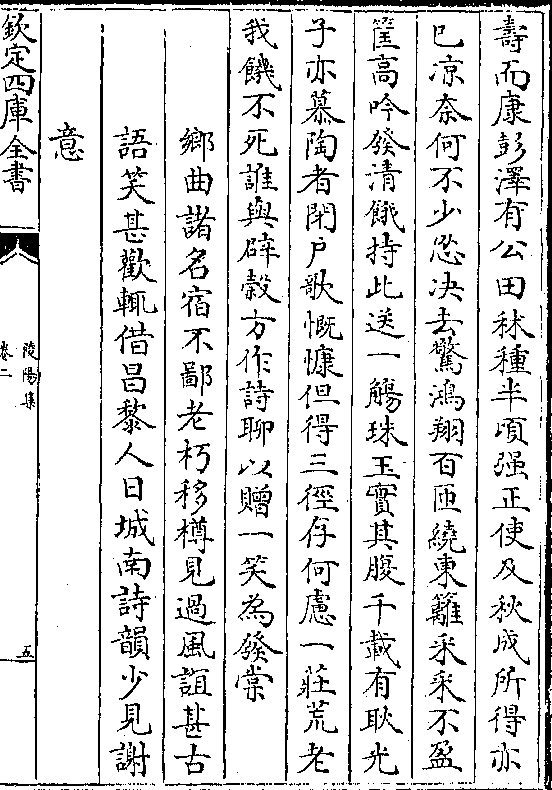 壽而康彭澤有公田秫種半頃强正使及秋成所得亦
已凉奈何不少忍决去驚鴻翔百匝繞東籬采采不盈
筐高吟發清餓持此送一觴珠玉實其腹千載有耿光
子亦慕陶者閉户歌慨慷但得三徑存何慮一莊荒老
我饑不死誰與辟榖方作詩聊以贈一笑為發棠
鄉曲諸名宿不鄙老朽移樽見過風誼甚古
語笑甚歡輒借昌黎人日城南詩韻少見謝
意
欽定四庫全書
陵陽集
卷二
五